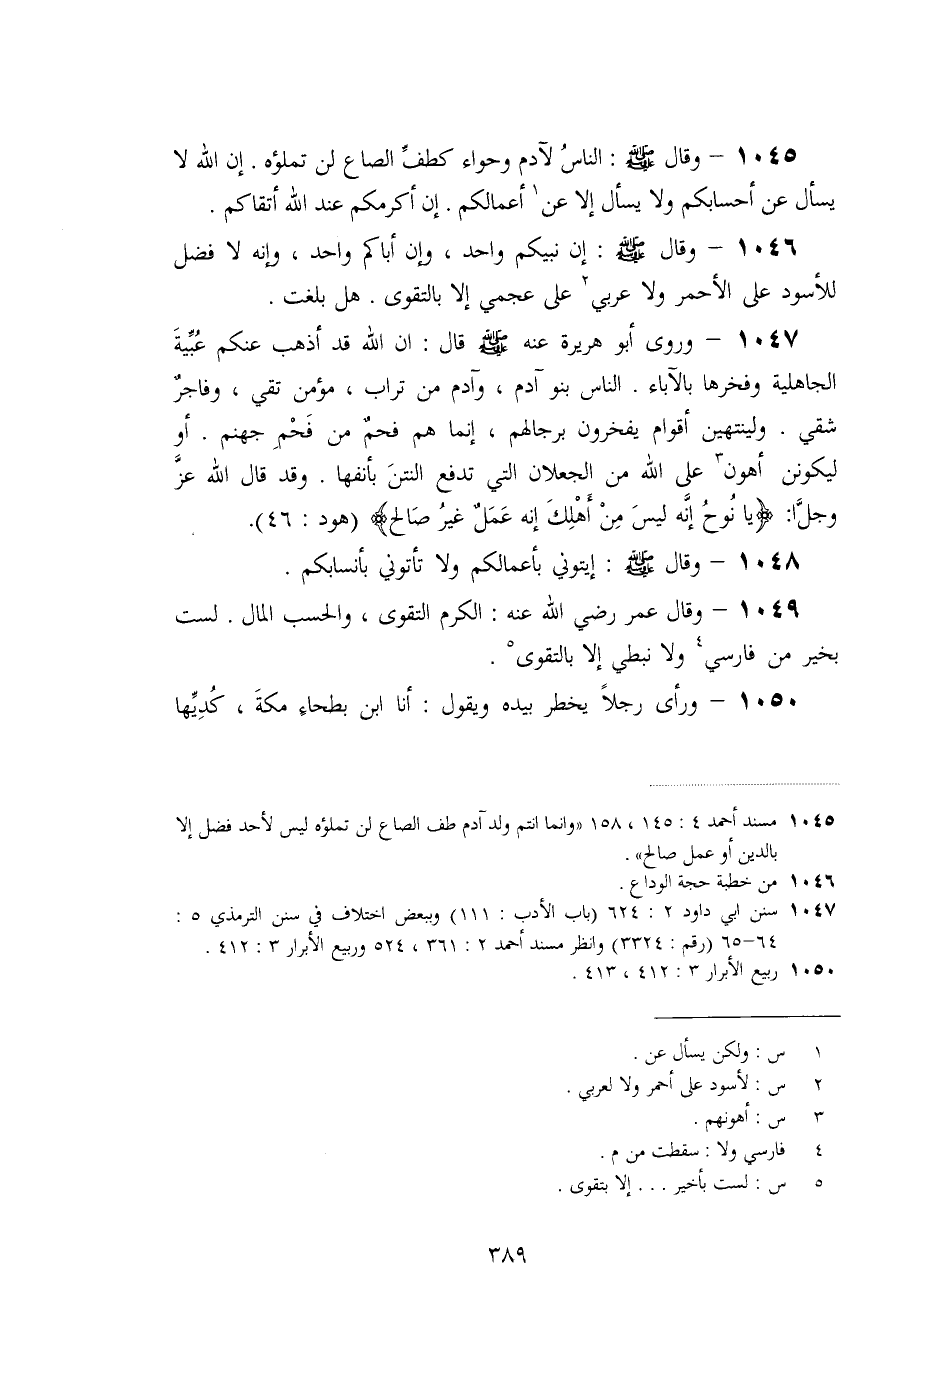 ١٠٤٥ – وقال ﷺ : الناسُ لآدم وحواء كطفِّ الصاع لن تملؤه . إن الله لا
يسأل عن أحسابكم ولا يسأل إلا عن١ أعمالكم . إن أكرمكم عند الله أتقاكم .
١٠٤٦ – وقال ﷺ : إن نبيكم واحد ، وإن أباكم واحد ، وإنه لا فضل
للأسود على الأحمر ولا عربي٢ على عجمي إلا بالتقوى . هل بلغت .
١٠٤٧ – وروى أبو هريرة عنه ﷺ قال : ان الله قد أذهب عنكم عُبِّيةَ
الجاهلية وفخرها بالآباء . الناس بنو آدم ، وآدم من تراب ، مؤمن تقي ، وفاجرٌ
شقي . ولينتهين أقوام يفخرون برجالهم ، إنما هم فحمٌ من فَحْمِ جهنم . أو
ليكونن أهون٣ على الله من الجعلان التي تدفع النتنَ بأنفها . وقد قال الله عزَّ
وجلَّا: ﴿يا نُوحُ إنَّه ليسَ مِنْ أَهْلِكَ إنه عَمَلٌ غيرُ صَالح﴾ (هود : ٤٦).
١٠٤٨ – وقال ﷺ : إيتوني بأعمالكم ولا تأتوني بأنسابكم .
١٠٤٩ – وقال عمر رضي الله عنه : الكرم التقوى ، والحسب المال . لست
بخير من فارسي٤ ولا نبطي إلا بالتقوى٥ .
١٠٥٠ – ورأى رجلاً يخطر بيده ويقول : أنا ابن بطحاءِ مكةَ ، كُدِيِّها
١٠٤٥ مسند أحمد ٤ : ١٤٥ ، ١٥٨ «وانما انتم ولد آدم طف الصاع لن تملؤه ليس لأحد فضل إلا
بالدين أو عمل صالح» .
١٠٤٦ من خطبة حجة الوداع .
١٠٤٧ سنن ابي داود ٢ : ٦٢٤ (باب الأدب : ١١١) وببعض اختلاف في سنن الترمذي ٥ :
٦٤–٦٥ (رقم : ٣٣٢٤) وانظر مسند أحمد ٢ : ٣٦١ ، ٥٢٤ وربيع الأبرار ٣ : ٤١٢ .
١٠٥٠ ربيع الأبرار ٣ : ٤١٢ ، ٤١٣ .
١ س : ولكن يسأل عن .
٢ س : لأسود على أحمر ولا لعربي .
٣ س : أهونهم .
٤ فارسي ولا : سقطت من م .
٥ س : لست بأخير . . . إلا بتقوى .
٣٨٩